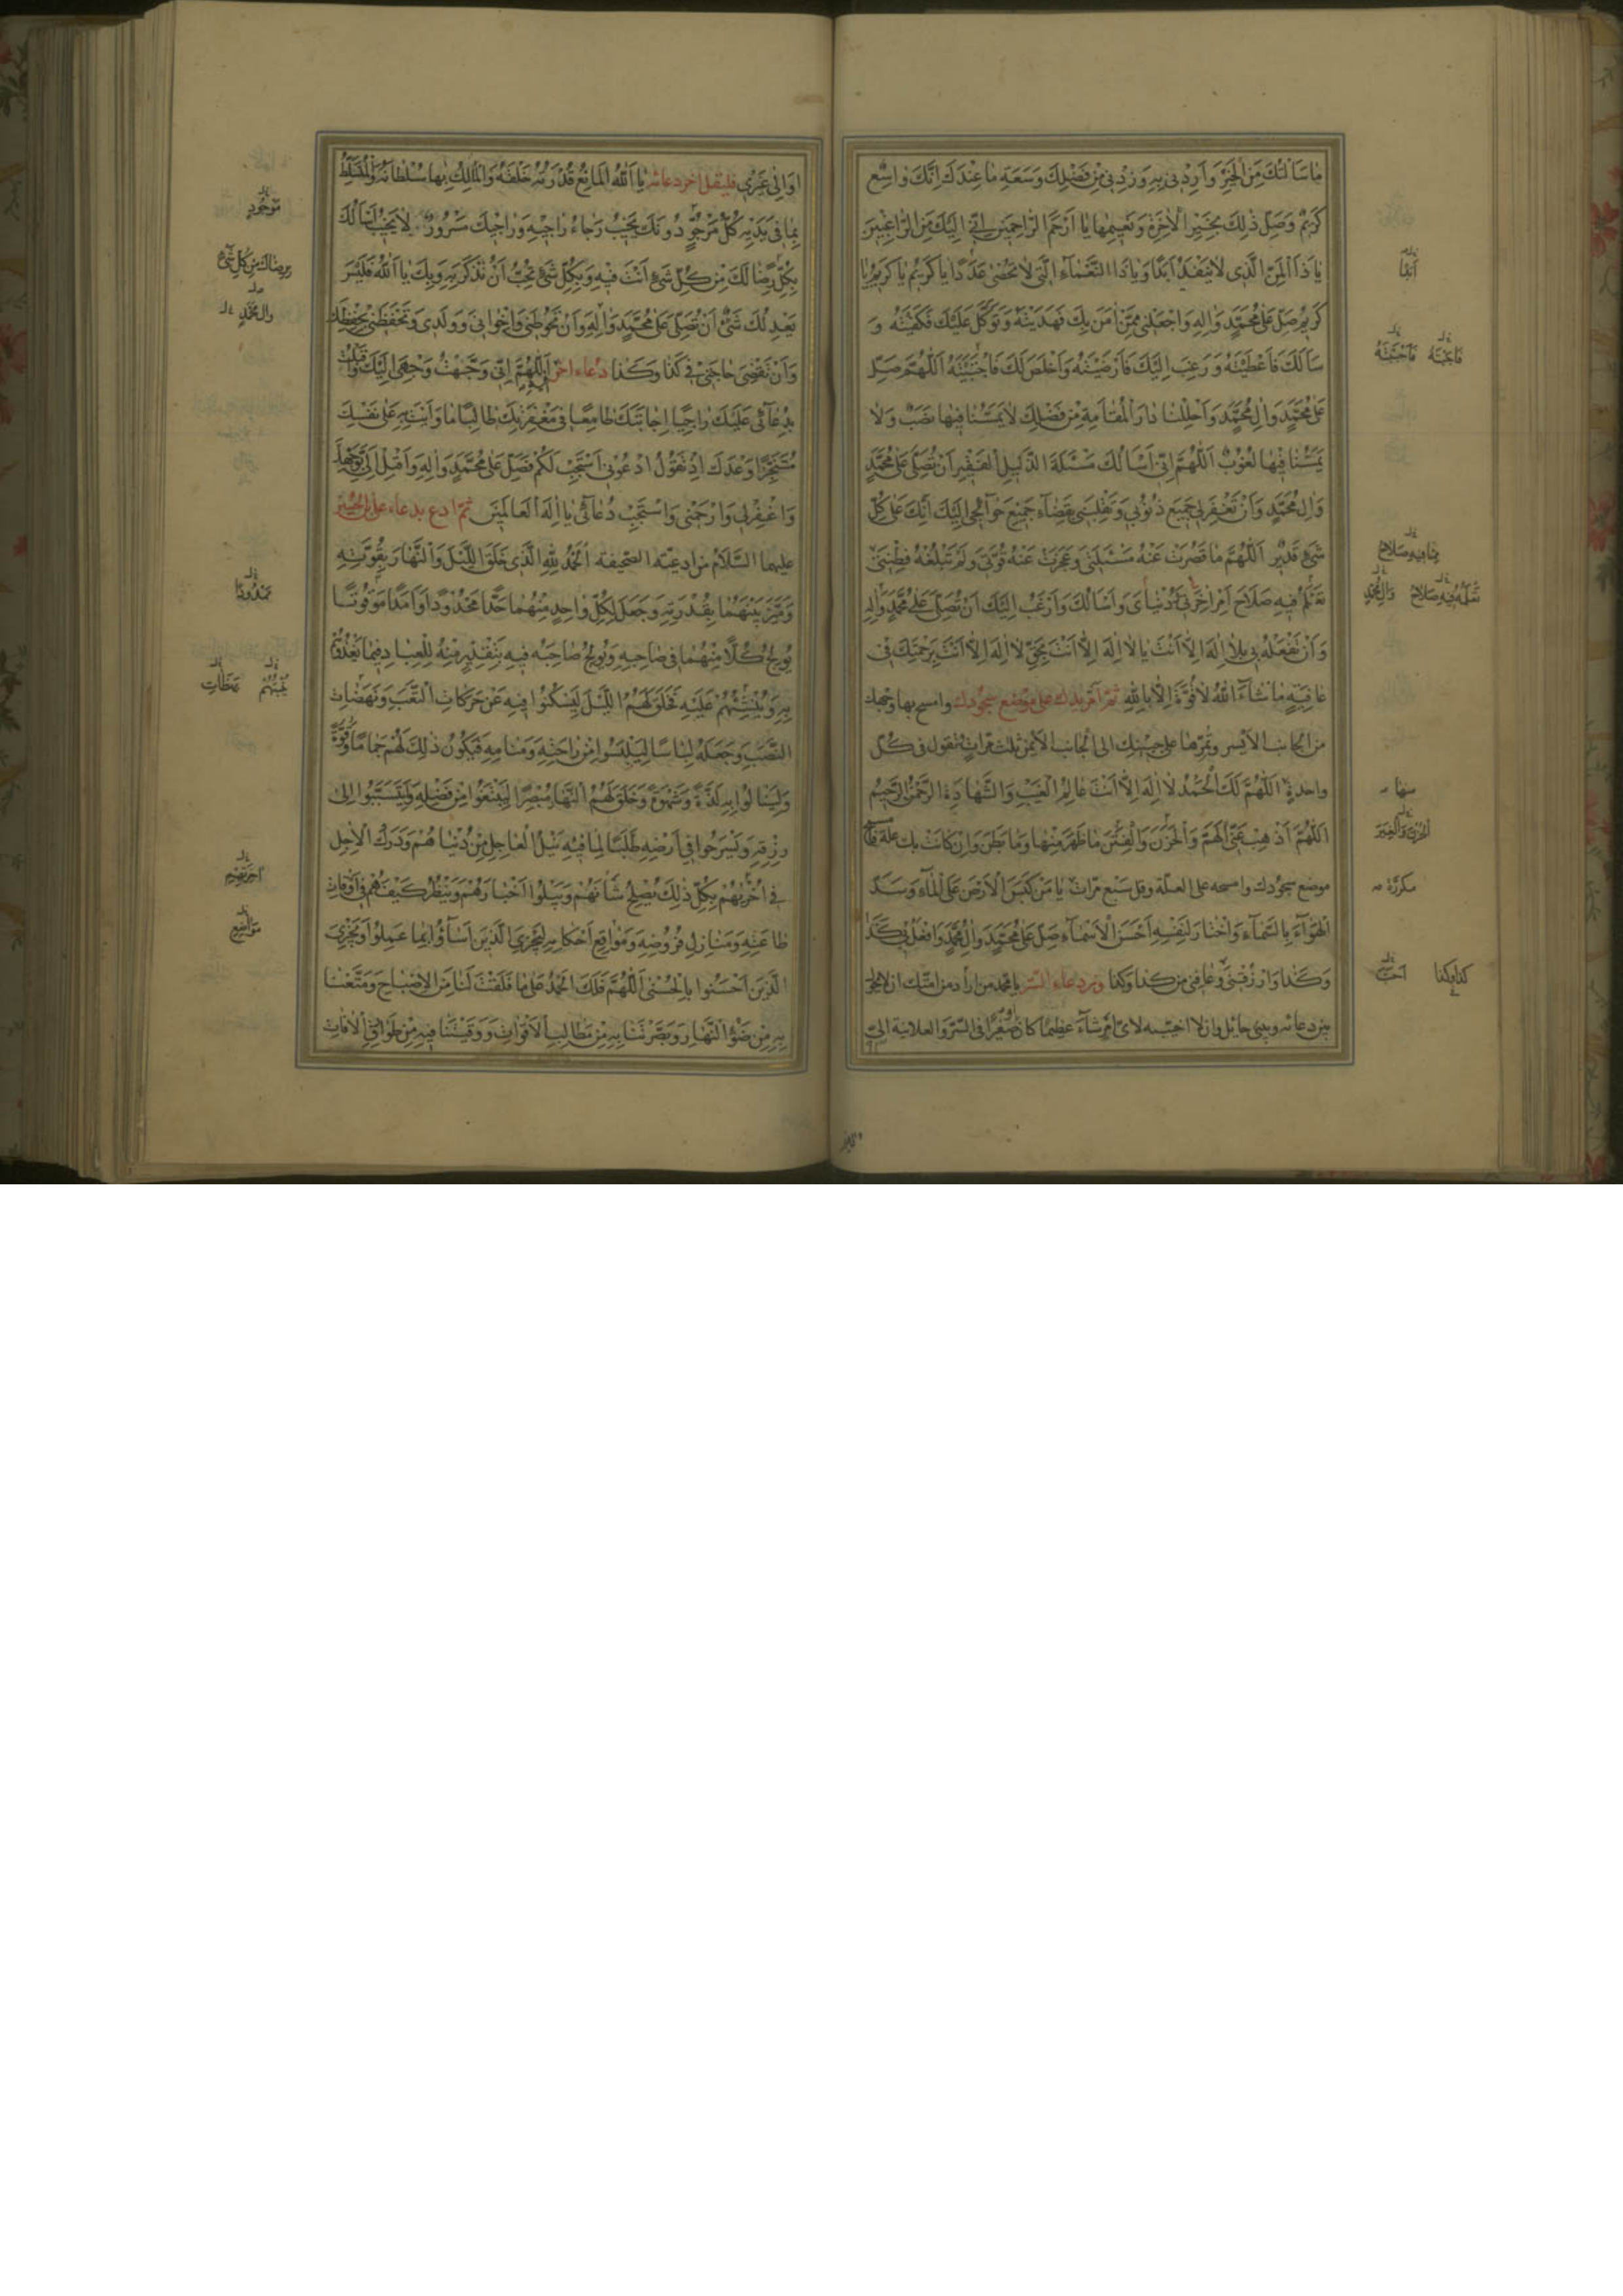 مٰا سَأَلْتُكَ مِنَ الْخَيْرِ وَاَرِدْنی بِهِ وَزِدْنی مِنْ فَضْلِكَ وَسَعَةِ مٰا عِنْدَكَ اِنَّكَ وٰاسِعٌ
كَرِيمٌ وَصِلْ ذٰلِكَ بِخَيْرِ الْاٰخِرَةِ وَنَعيمِهٰا يٰا اَرْحَمَ الرّٰاحِمينَ اِنّی اِلَيْكَ مِنَ الرّٰاغِبينَ
يٰا ذَا الْمَنِّ الَّذی لٰا يَنْفَدُ اَبَدًا وَيٰا ذَا النَّعْمٰاءِ الَّتی لٰا تُحْصٰی عَدَدًا يٰا كَريمُ يٰا كَريمُ يٰا
كَريمُ صَلِّ عَلٰی مُحَمَّدٍ وَاٰلِهِ وَاجْعَلْنی مِمَّنْ اٰمَنَ بِكَ فَهَدَيْتَهُ وَتَوَكَّلَ عَلَيْكَ فَكَفَيْتَهُ وَ
سَأَلَكَ فَاَعْطَيْتَهُ وَرَغِبَ اِلَيْكَ فَاَرْضَيْتَهُ وَاَخْلَصَ لَكَ فَاَنْجَيْتَهُ اَللّٰهُمَّ صَلِّ
عَلٰی مُحَمَّدٍ وَاٰلِ مُحَمَّدٍ وَاَحْلِلْنٰا دٰارَ الْمُقٰامَةِ مِنْ فَضْلِكَ لٰا يَمَسُّنٰا فيهٰا نَصَبٌ وَلٰا
يَمَسُّنٰا فيهٰا لُغُوبٌ اَللّٰهُمَّ اِنّی اَسْأَلُكَ مَسْئَلَةَ الذَّليلِ الْفَقيرِ اَنْ تُصَلِّیَ عَلٰی مُحَمَّدٍ
وَاٰلِ مُحَمَّدٍ وَاَنْ تَغْفِرَ لی جَميعَ ذُنُوبی وَتَقْلِبَنی بِقَضٰاءِ جَميعِ حَوٰائِجی اِلَيْكَ اِنَّكَ عَلٰی كُلِّ
شَیْءٍ قَديرٌ اَللّٰهُمَّ مٰا قَصُرَتْ عَنْهُ مَسْئَلَتی وَعَجَزَتْ عَنْهُ قُوَّتی وَلَمْ تَبْلُغْهُ فِطْنَتی
تَعْلَمُ فيهِ صَلٰاحَ اَمْرِ اٰخِرَتی وَدُنْيٰایَ وَاَسْأَلُكَ وَاَرْغَبُ اِلَيْكَ اَنْ تُصَلِّیَ عَلٰی مُحَمَّدٍ وَاٰلِهِ
وَاَنْ تَفْعَلَهُ بی بِلٰا اِلٰهَ اِلّٰا اَنْتَ يٰا لٰا اِلٰهَ اِلّٰا اَنْتَ بِحَقِّ لٰا اِلٰهَ اِلّٰا اَنْتَ بِرَحْمَتِكَ فی
عٰافِيَةٍ مٰا شٰاءَ اللّٰهُ لٰا قُوَّةَ اِلّٰا بِاللّٰهِ ثمّ امرّ يدك علی موضع سجودك وامسح بها وجهك
من الجانب الايسر وتمرّها علی جبهتك الی الجانب الايمن ثلث مرّات تقول فی كلّ
واحدة اَللّٰهُمَّ لَكَ الْحَمْدُ لٰا اِلٰهَ اِلّٰا اَنْتَ عٰالِمُ الْغَيْبِ وَالشَّهٰادَةِ الرَّحْمٰنُ الرَّحيمُ
اَللّٰهُمَّ اَذْهِبْ عَنِّی الْهَمَّ وَالْحَزَنَ وَالْفِتَنَ مٰا ظَهَرَ مِنْهٰا وَمٰا بَطَنَ وان كانت بك علة فامسح
موضع سجودك وامسحه علی العلّة وقل سبع مرّات يٰا مَنْ كَبَسَ الْاَرْضَ عَلَی الْمٰاءِ وَسَدَّ
الْهَوٰاءَ بِالسَّمٰاءِ وَاخْتٰارَ لِنَفْسِهِ اَحْسَنَ الْاَسْمٰاءِ صَلِّ عَلٰی مُحَمَّدٍ وَاٰلِ مُحَمَّدٍ وَافْعَلْ بی كَذٰا
وَكَذٰا وَارْزُقْنی وَعٰافِنی من كذا وكذا ومن دعاء السّر يا محمد من اراد من امّتك ان لا يحول
بين دعائه وبينی حائل وان لا اخيّبه لایّ امر شاء عظيمًا كان او صغيرًا فی السّر والعلانية الیّ
اَبَدًا
بِمٰا فيهِ صَلٰاحُ
وَاٰلِ مُحَمَّدٍ
مكررة
كذا وكذا
اَوْ اِلٰی غَيْری فليقل اخر دعائه يٰا اَللّٰهُ الْمٰانِعُ قُدْرَتُهُ خَلْقَهُ وَالْمٰالِكُ بِهٰا سُلْطٰانَهُ وَالْمُتَسَلِّطُ
بِمٰا فی يَدَيْهِ كُلُّ مَرْجُوٍّ دُونَكَ يَخيبُ رَجٰاءُ رٰاجيهِ وَرٰاجيكَ مَسْرُورٌ لٰا يَخيبُ اَسْأَلُكَ
بِكُلِّ رِضًا لَكَ مِنْ كُلِّ شَیْءٍ اَنْتَ فيهِ وَبِكُلِّ شَیْءٍ تُحِبُّ اَنْ تُذْكَرَ بِهِ وَبِكَ يٰا اَللّٰهُ فَلَيْسَ
يَعْدِلُكَ شَیْءٌ اَنْ تُصَلِّیَ عَلٰی مُحَمَّدٍ وَاٰلِهِ وَاَنْ تَحُوطَنی وَاِخْوٰانی وَوَلَدی وَتَحْفَظَنی بِحِفْظِكَ
وَاَنْ تَقْضِیَ حٰاجَتی فی كَذٰا وَكَذٰا دعاء اخر اَللّٰهُمَّ اِنّی وَجَّهْتُ وَجْهی اِلَيْكَ وَاَقْبَلْتُ
بِدُعٰائی عَلَيْكَ رٰاجِيًا اِجٰابَتَكَ طٰامِعًا فی مَغْفِرَتِكَ طٰالِبًا مٰا وَاَيْتَ بِهِ عَلٰی نَفْسِكَ
مُسْتَنْجِزًا وَعْدَكَ اِذْ تَقُولُ ادْعُونی اَسْتَجِبْ لَكُمْ فَصَلِّ عَلٰی مُحَمَّدٍ وَاٰلِهِ وَاَقْبِلْ اِلَیَّ بِوَجْهِكَ
وَاغْفِرْ لی وَارْحَمْنی وَاسْتَجِبْ دُعٰائی يٰا اِلٰهَ الْعٰالَمينَ ثمّ ادع بدعاء علی بن الحسين
عليهما السّلام من ادعيته الصّحيفه اَلْحَمْدُ لِلّٰهِ الَّذی خَلَقَ اللَّيْلَ وَالنَّهٰارَ بِقُوَّتِهِ
وَمَيَّزَ بَيْنَهُمٰا بِقُدْرَتِهِ وَجَعَلَ لِكُلِّ وٰاحِدٍ مِنْهُمٰا حَدًّا مَحْدُودًا وَاَمَدًا مَوْقُوتًا
يُولِجُ كُلًّا مِنْهُمٰا فی صٰاحِبِهِ وَيُولِجُ صٰاحِبَهُ فيهِ بِتَقْديرٍ مِنْهُ لِلْعِبٰادِ فيمٰا يَغْذُوهُمْ
بِهِ وَيُنْشِئُهُمْ عَلَيْهِ فَخَلَقَ لَهُمُ اللَّيْلَ لِيَسْكُنُوا فيهِ مِنْ حَرَكٰاتِ التَّعَبِ وَنَهَضٰاتِ
النَّصَبِ وَجَعَلَهُ لِبٰاسًا لِيَلْبَسُوا مِنْ رٰاحَتِهِ وَمَنٰامِهِ فَيَكُونَ ذٰلِكَ لَهُمْ جَمٰامًا وَقُوَّةً
وَلِيَنٰالُوا بِهِ لَذَّةً وَشَهْوَةً وَخَلَقَ لَهُمُ النَّهٰارَ مُبْصِرًا لِيَبْتَغُوا مِنْ فَضْلِهِ وَلِيَتَسَبَّبُوا اِلٰی
رِزْقِهِ وَيَسْرَحُوا فی اَرْضِهِ طَلَبًا لِمٰا فيهِ نَيْلُ الْعٰاجِلِ مِنْ دُنْيٰاهُمْ وَدَرَكُ الْاٰجِلِ
فی اُخْرٰيهُمْ بِكُلِّ ذٰلِكَ يُصْلِحُ شَأْنَهُمْ وَيَبْلُوا اَخْبٰارَهُمْ وَيَنْظُرُ كَيْفَ هُمْ فی اَوْقٰاتِ
طٰاعَتِهِ وَمَنٰازِلِ فُرُوضِهِ وَمَوٰاقِعِ اَحْكٰامِهِ لِيَجْزِیَ الَّذينَ اَسٰاؤُا بِمٰا عَمِلُوا وَيَجْزِیَ
الَّذينَ اَحْسَنُوا بِالْحُسْنٰی اَللّٰهُمَّ فَلَكَ الْحَمْدُ عَلٰی مٰا فَلَقْتَ لَنٰا مِنَ الْاِصْبٰاحِ وَمَتَّعْتَنٰا
بِهِ مِنْ ضَوْءِ النَّهٰارِ وَبَصَّرْتَنٰا بِهِ مِنْ مَطٰالِبِ الْاَقْوٰاتِ وَوَقَيْتَنٰا فيهِ مِنْ طَوٰارِقِ الْاٰفٰاتِ
مَوْجُودٍ
بِرِضٰاكَ مِنْ كُلِّ شَیْءٍ
وَاٰلِ مُحَمَّدٍ
مَمْدُودًا
اٰخِرَتِهِمْ
مَوٰاضِعِ